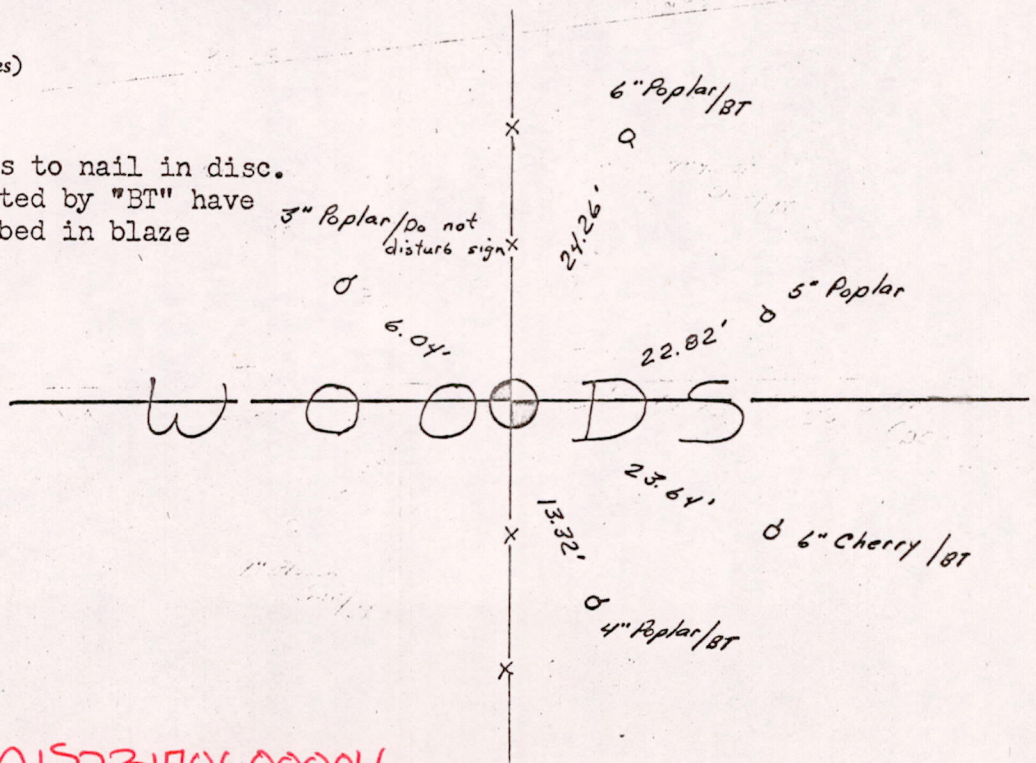 es)
s to nail in disc.
ted by "BT" have
bed in blaze
6" Poplar/BT
24.26'
3" Poplar/Do not
disturb sign
6.04'
5" Poplar
22.82'
WOODS
23.64'
13.32'
6" Cherry/BT
4" Poplar/BT